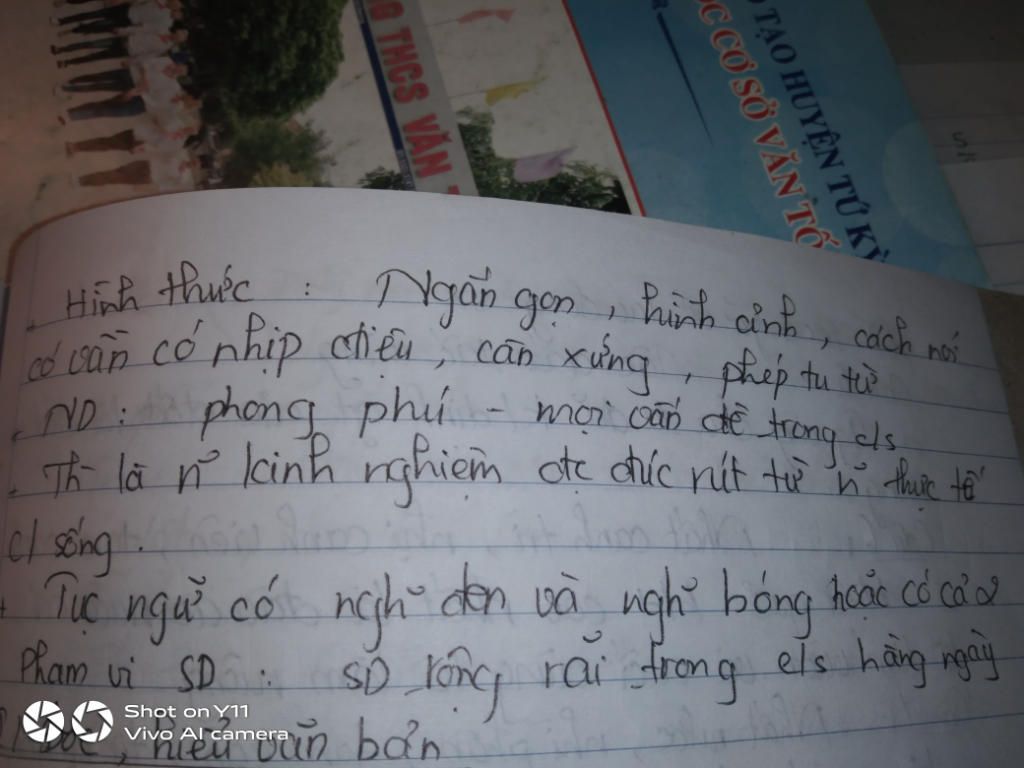 G THCS VĂN
TẠO HUYỆN TỨ KỲ
ỌC CƠ SỞ VĂN TỐ
- Hình thức : Ngắn gọn, hình ảnh, cách nói
có vần có nhịp điệu, cân xứng, phép tu từ
- ND : phong phú - mọi vấn đề trong c/s
- Th là n~ kinh nghiệm đc đúc rút từ n~ thực tế
c/ sống.
+ Tục ngữ có nghĩ đen và nghĩ bóng hoặc có cả 2
Phạm vi SD : SD rộng rãi trong c/s hằng ngày
, hiểu văn bản
Shot on Y11
Vivo AI camera